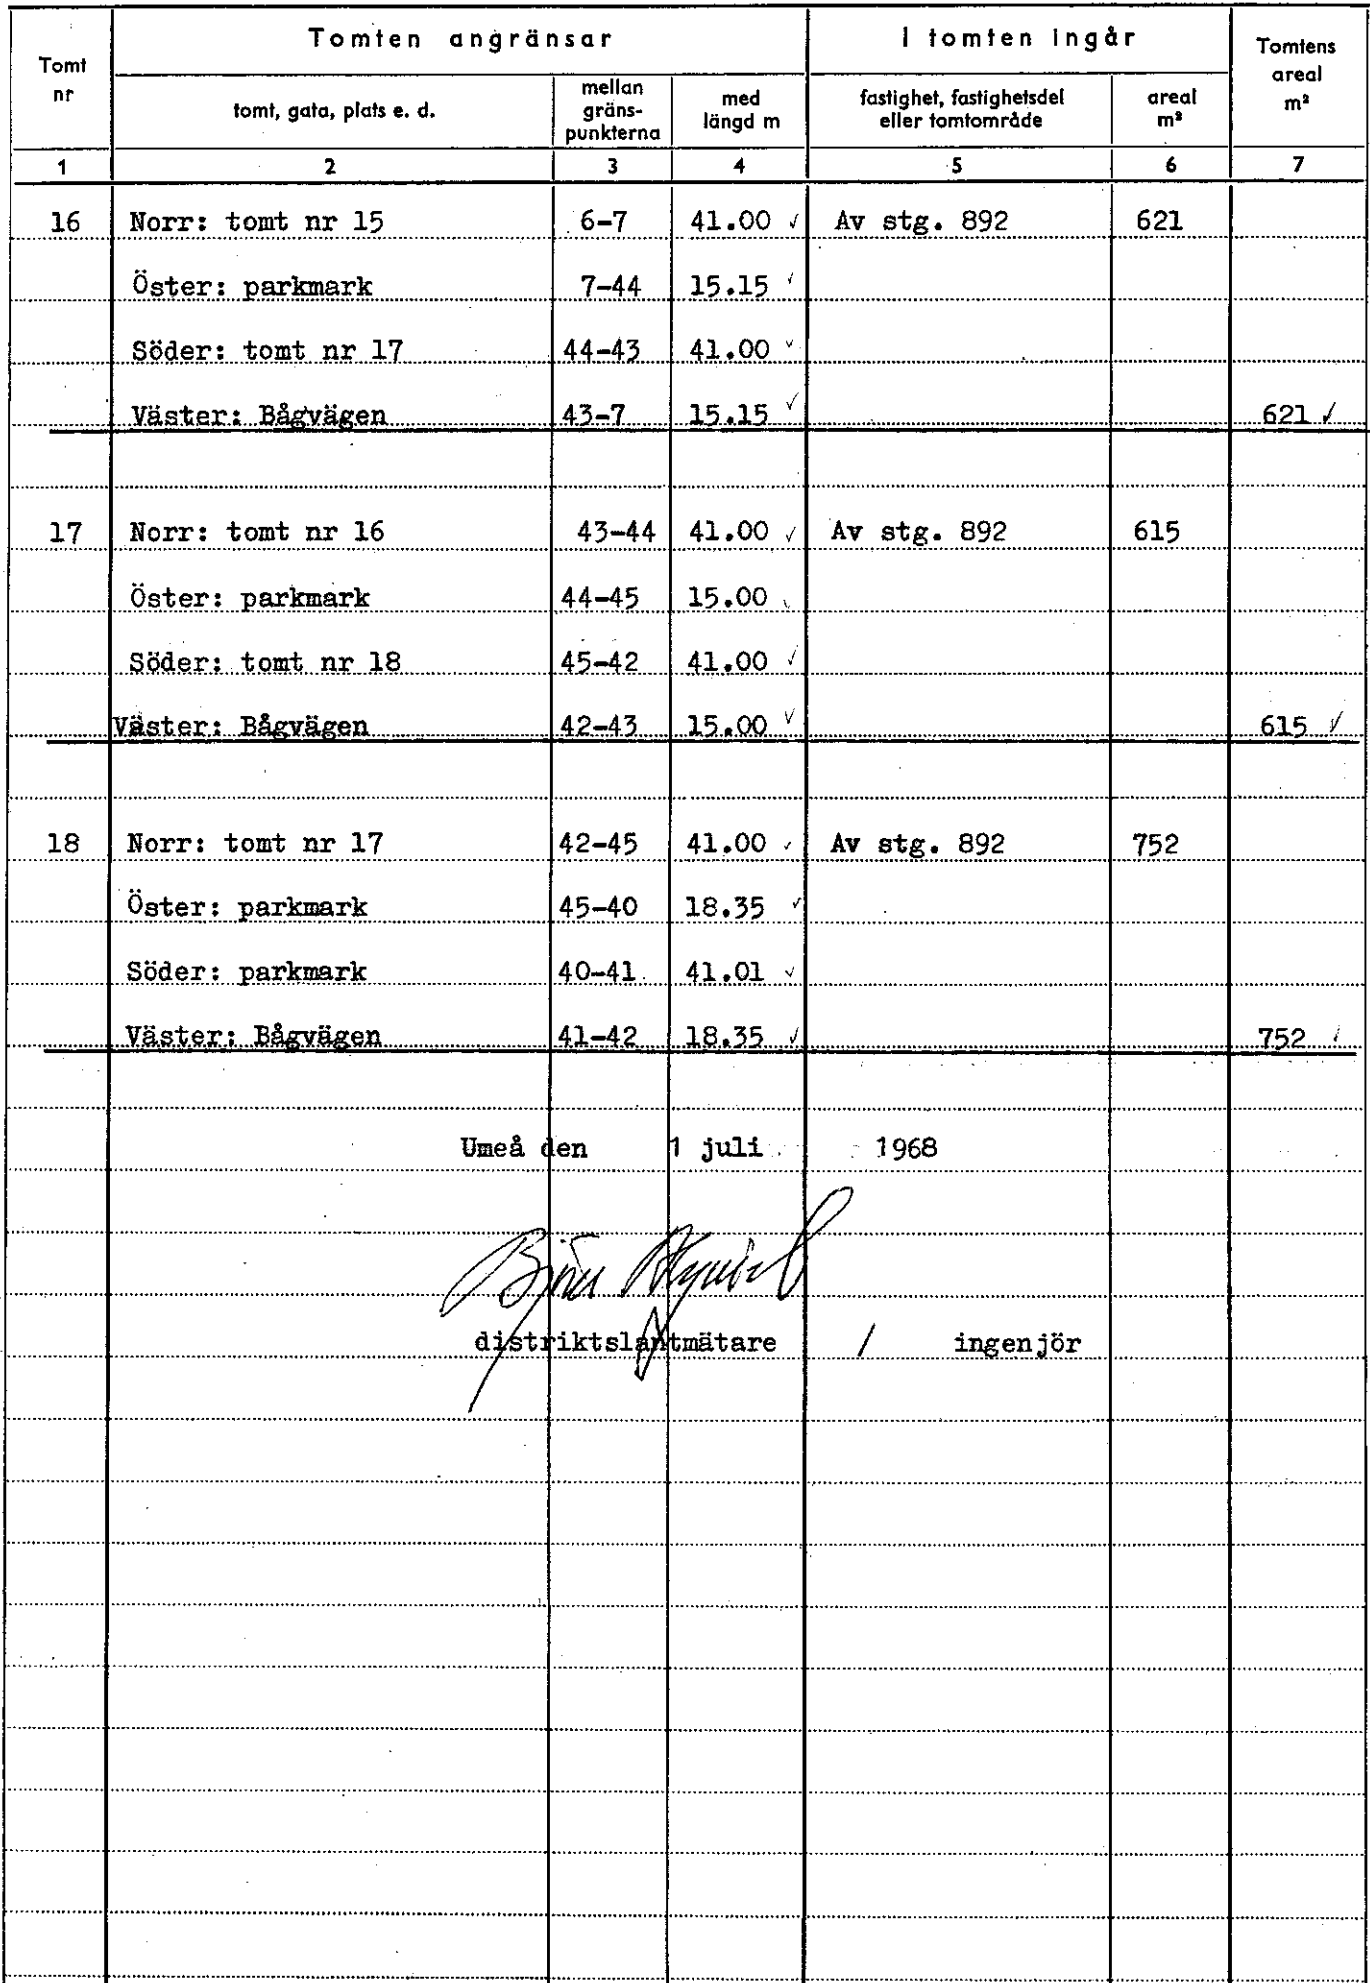 Tomt nr Tomten angränsar I tomten ingår Tomtens areal m²
tomt, gata, plats e. d. mellan gräns-punkterna med längd m fastighet, fastighetsdel eller tomtområde areal m²
1 2 3 4 5 6 7
16 Norr: tomt nr 15 6-7 41.00 ✓ Av stg. 892 621
Öster: parkmark 7-44 15.15 ✓
Söder: tomt nr 17 44-43 41.00 ✓
Väster: Bågvägen 43-7 15.15 ✓ 621 ✓
17 Norr: tomt nr 16 43-44 41.00 ✓ Av stg. 892 615
Öster: parkmark 44-45 15.00
Söder: tomt nr 18 45-42 41.00 ✓
Väster: Bågvägen 42-43 15.00 ✓ 615 ✓
18 Norr: tomt nr 17 42-45 41.00 ✓ Av stg. 892 752
Öster: parkmark 45-40 18.35 ✓
Söder: parkmark 40-41 41.01 ✓
Väster: Bågvägen 41-42 18.35 ✓ 752 ✓
Umeå den 1 juli 1968
Björn
distriktslantmätare / ingenjör